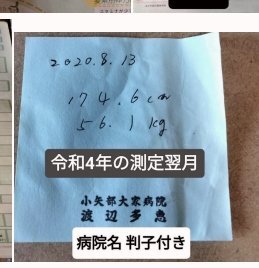 2020.8.13
174.6cm
56.1kg
令和4年の測定翌月
小矢部大家病院
渡辺多恵
病院名 判子付き